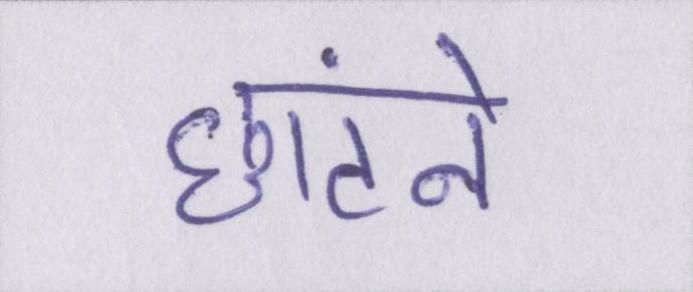 छांटने